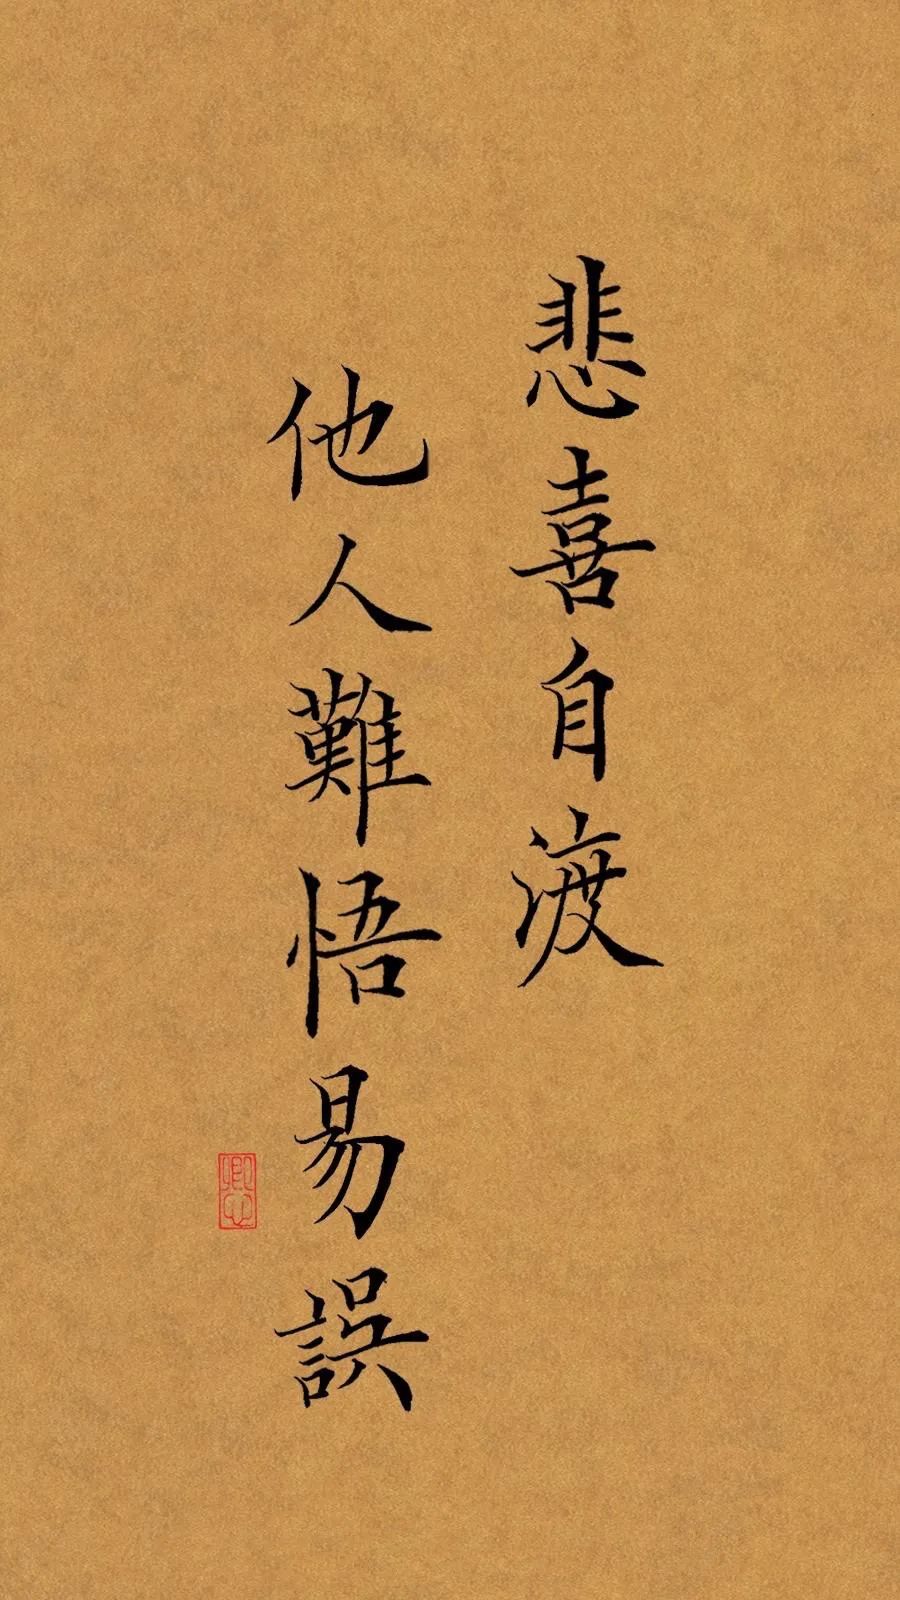 悲喜自渡
他人難悟易誤